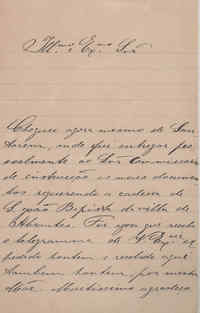 Illmo. Exmo. Snr.
Cheguei agora mesmo de San
tarem, onde fui entregar pes
soalmente ao Snr. Commissario
de instrucção os meus documen
tos requerendo a cadeira de
S. João Baptista da villa de
Abrantes. Foi por que recebi
o telegramma de V. Exa.
pedido hontem e recebido aqui
tambem hontem, por minha
Mãe. Muitissimo agradeço